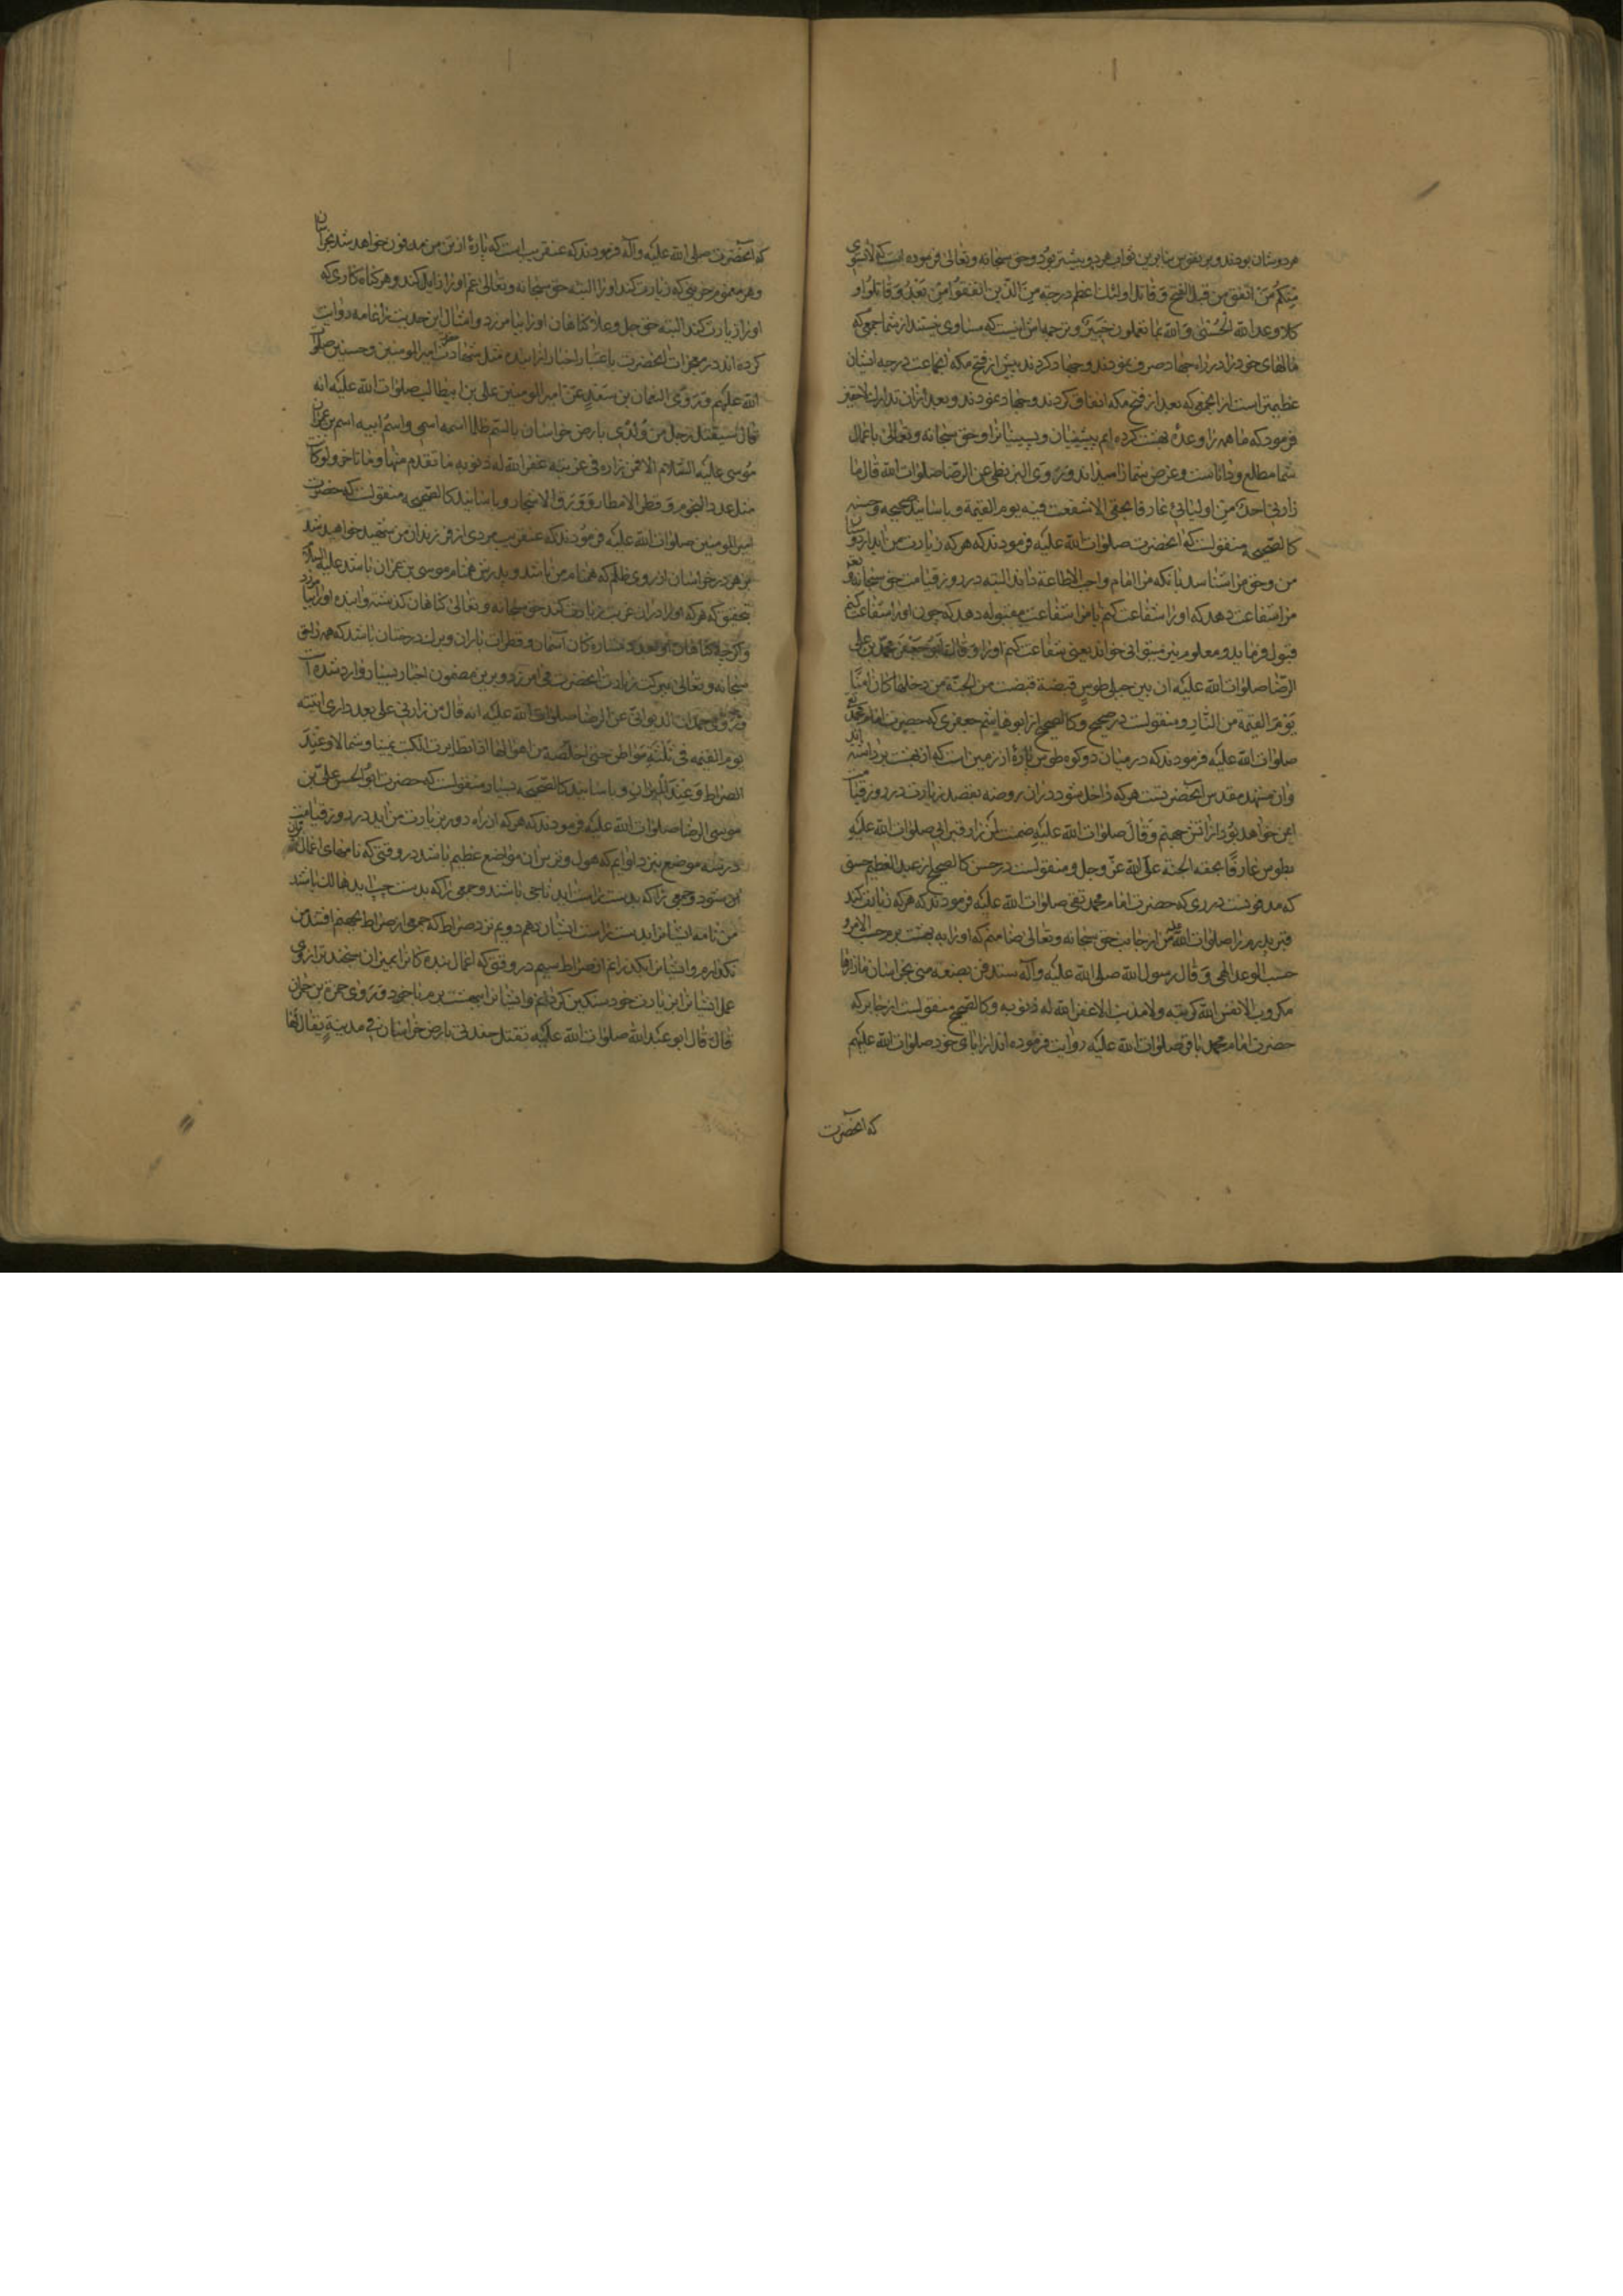 هر دو شان بودند و برین ثواب هر دو بیشتر بود و حق سبحانه و تعالی فرموده است که لا یستوی
منکم من انفق من قبل الفتح و قاتل اولئک اعظم درجة من الذین انفقوا من بعد و قاتلوا و
کلا وعد الله الحسنی و الله بما تعملون خبیر و ترجمه اش اینست که مساوی نیستند از شما جمعی که
مالهای خود را در راه جهاد صرف نمودند و جهاد کردند پیش از فتح مکه انجماعت درجه ایشان
عظیمتر است از انجمعی که بعد از فتح مکه انفاق کردند و جهاد نمودند و بعد از آن
فرمود که ما همه را وعدهٔ بهشت کرده ایم پیشینیان و پسینیانرا و حق سبحانه و تعالی باعمال
شما مطلع و داناست و عوض شما را میداند و روی البزنطی عن الرضا صلوات الله قال ما
زارنی احد من اولیائی عارفا بحقی الا شفعت فیه یوم القیمة و باسانید صحیحه و حسنه
کالصحیحه منقولست که انحضرت صلوات الله علیه فرمودند که هر که زیارت من اید از دوستان
من و حق مرا شناسد بانکه مرا امام واجب الاطاعة داند البته در روز قیامت حق سبحانه و تعالی
مرا شفاعت دهد که او را شفاعت کنم یا مرا شفاعت مقبوله دهد که چون او را شفاعت کنم
قبول فرماید و معلوم نیز میتوانی خواند یعنی شفاعت کنم او را و قال ابو جعفر محمد بن علی
الرضا صلوات الله علیه ان بین جبلی طوس قبضة قبضت من الجنة من دخلها کان امنا
یوم القیمة من النار و منقولست در صحیح و کالصحیح از ابو هاشم جعفری که حضرت امام محمد تقی
صلوات الله علیه فرمودند که در میان دو کوه طوس پارهٔ از زمین است که از بهشت برداشته اند
وان مشهد مقدس انحضرتست هر که داخل شود دران روضه بقصد زیارت در روز قیامت
ایمن خواهد بود از اتش جهنم و قال صلوات الله علیه ضمنت لمن زار قبر ابی صلوات الله علیه
بطوس عارفا بحقه الجنة علی الله عز و جل و منقولست در حسن کالصحیح از عبد العظیم حسنی
که مدفونست در ری که حضرت امام محمد تقی صلوات الله علیه فرمودند که هر که زیارت کند
قبر پدرم را صلوات الله علیه من از جانب حق سبحانه و تعالی ضامنم که او را به بهشت برد حسب الامر و
حسب الوعد الهی و قال رسول الله صلی الله علیه و آله ستدفن بضعة منی بخراسان ما زارها
مکروب الا نفس الله کربته و لا مذنب الا غفر الله له ذنوبه و کالصحیح منقولست از جابر که
حضرت امام محمد باقر صلوات الله علیه روایت فرموده اند از ابای خود صلوات الله علیهم
که انحضرت
که انحضرت صلی الله علیه و آله فرمودند که عنقریب است که پارهٔ از تن من مدفون خواهد شد بخراسان
و هر مغموم حزینی که زیارت کند او را البته حق سبحانه و تعالی غم او را زایل کند و هر گناه کاری که
او را زیارت کند البته حق جل و علا گناهان او را بیامرزد و امثال این حدیث را عامه روایت
کرده اند در معجزات انحضرت باعتبار اخبار از آینده مثل شهادت امیر المومنین و حسنین صلوات
الله علیهم و روی النعمان بن سعد عن امیر المومنین علی بن ابیطالب صلوات الله علیه انه
قال سیقتل رجل من ولدی بارض خراسان بالسم ظلما اسمه اسمی و اسم ابیه اسم بن عمران
موسی علیه السلام الا فمن زاره فی غربته غفر الله له ذنوبه ما تقدم منها و ما تاخر و لو کانت
مثل عدد النجوم و قطر الامطار و ورق الاشجار و باسانید کالصحیحه منقولست که حضرت
امیر المومنین صلوات الله علیه فرمودند که عنقریب مردی از فرزندان من شهید خواهد شد
بزهر در خراسان از روی ظلم که همنام من باشد و پدرش همنام موسی بن عمران باشد علیه السلام
بتحقیق که هر که او را دران غربت زیارت کند حق سبحانه و تعالی گناهان گذشته و اینده او را بیامرزد
و اگرچه گناهان او بعدد ستاره کان آسمان و قطرات باران و برگ درختان باشد که همه را حق
سبحانه و تعالی ببرکت زیارت انحضرت می امرزد و برین مضمون اخبار بسیار وارد شده است
و روی حمدان الدیوانی عن الرضا صلوات الله علیه انه قال من زارنی علی بعد داری اتیته
یوم القیمه فی ثلثة مواطن حتی اخلصه من اهوالها اذا تطایرت الکتب یمینا و شمالا و عند
الصراط و عند المیزان و باسانید کالصحیحه بسیار منقولست که حضرت ابو الحسن علی بن
موسی الرضا صلوات الله علیه فرمودند که هر که از راه دور بزیارت من اید در روز قیامت
در سه موضع بنزد او ایم که هول و ترس آن مواضع عظیم باشد در وقتی که نامهای اعمال
پران شود و جمعی را که بدست راست اید ناجی باشند و جمعی را که بدست چپ اید هالک باشند
من نامه ایشانرا بدست راست ایشان دهم دویم نزد صراط که جمعی از صراط بجهنم افتند من
نگذارم و ایشانرا بگذرانم از صراط سیم در وقتی که اعمال بنده کانرا بمیزان سنجند ترازوی
عمل ایشانرا بزیارت خود سنگین گردانم و ایشانرا ببهشت برم با خود و روی حمزة بن حمران
قال قال ابو عبد الله صلوات الله علیه تقتل حفدتی بارض خراسان فی مدینة یقال لها